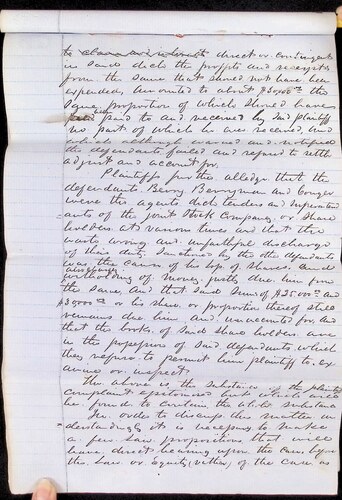 to claim an interest direct or contingent
in said dick the profits and receipts
from the same that should not have been
expended, amounted to about $50,000.00 the
same proportion of which should have
been paid to and received by said plaintiff
no part of which he has received, and
which although and notified
the defendants failed and refused to settle
adjust and account for.
Plaintiff further alledges that the
defendants Berry Berryman and Conger
were the agents dick tenders and Superintend
ants of the joint Stock Company or Share
holders at various times and that the
waste wrong and unfaithful discharge
of their duty Sanctioned by the other defendants
was the cause of his loss of shares and
withholding of money justly due him from
the same and that said Sums of $25000.00 and
$50000.00 or his share or proportion thereof still
remains due him and unaccounted for, and
that the books of said share holders are
in the possession of said defendants which
they refuse to permit him plaintiff to ex
amine or inspect.
The above is the substance of the plaintiffs
complaint but which will
be found to contain the substance
In order to discuss this matter un
derstandingly it is necessary to make
a few Law propositions that will
have direct bearing upon the case
the Law or Equity (either) of the case as